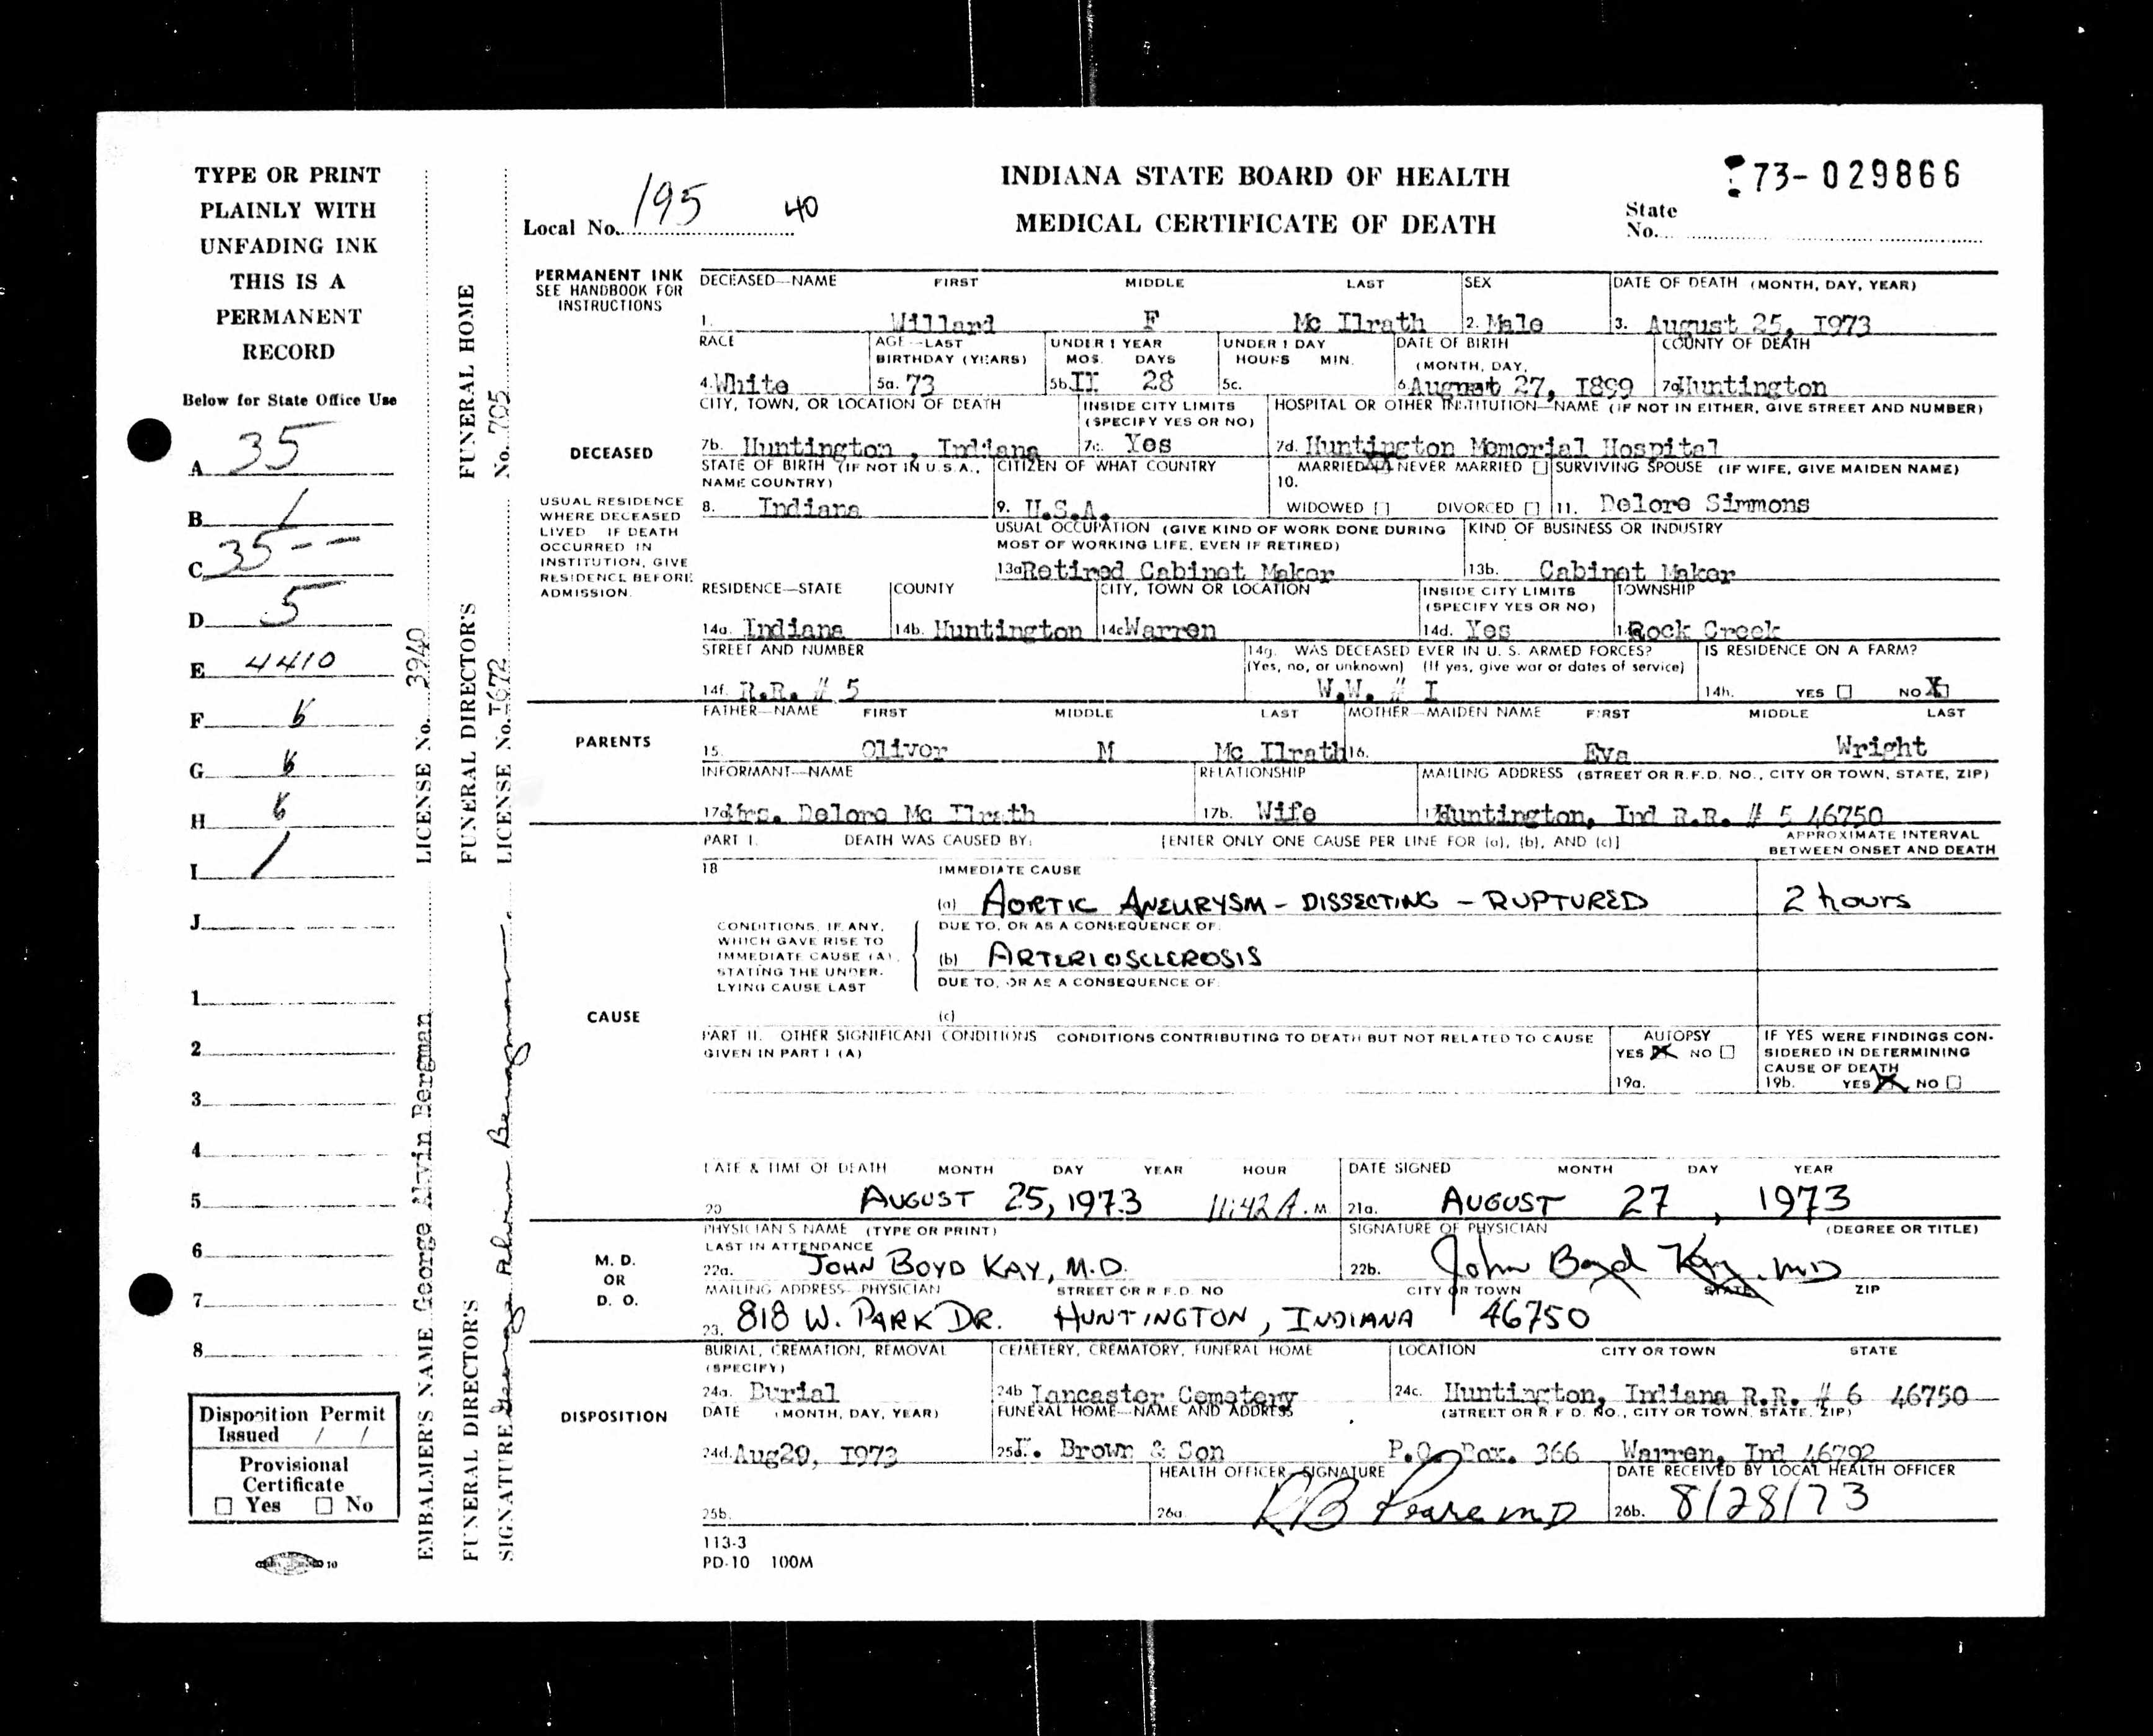 TYPE OR PRINT
PLAINLY WITH
UNFADING INK
THIS IS A
PERMANENT
RECORD
Below for State Office Use
A 35
B 1
C 35--
D 5
E 4410
F 6
G 6
H 6
I 1
J
1
2
3
4
5
6
7
8
Disposition Permit
Issued / /
Provisional
Certificate
☐ Yes ☐ No
EMBALMER'S NAME George Alvin Bergman LICENSE No. 3940
FUNERAL DIRECTOR'S FUNERAL DIRECTOR'S FUNERAL HOME
SIGNATURE George Alvin Bergman LICENSE No. I672 No. 705
Local No. 195 40
INDIANA STATE BOARD OF HEALTH
MEDICAL CERTIFICATE OF DEATH
73-029866
State
No.
PERMANENT INK
SEE HANDBOOK FOR
INSTRUCTIONS
DECEASED—NAME FIRST MIDDLE LAST SEX DATE OF DEATH (MONTH, DAY, YEAR)
1. Willard F Mc Ilrath 2. Male 3. August 25, I973
RACE AGE—LAST BIRTHDAY (YEARS) UNDER 1 YEAR MOS. DAYS UNDER 1 DAY HOURS MIN. DATE OF BIRTH (MONTH, DAY, COUNTY OF DEATH
4. White 5a. 73 5b. II 28 5c. 6. August 27, I899 7a. Huntington
DECEASED
CITY, TOWN, OR LOCATION OF DEATH INSIDE CITY LIMITS (SPECIFY YES OR NO) HOSPITAL OR OTHER INSTITUTION—NAME (IF NOT IN EITHER, GIVE STREET AND NUMBER)
7b. Huntington , Indiana 7c. Yes 7d. Huntington Memorial Hospital
USUAL RESIDENCE
WHERE DECEASED
LIVED IF DEATH
OCCURRED IN
INSTITUTION, GIVE
RESIDENCE BEFORE
ADMISSION.
STATE OF BIRTH (IF NOT IN U.S.A., NAME COUNTRY) CITIZEN OF WHAT COUNTRY 10. MARRIED NEVER MARRIED ☐ SURVIVING SPOUSE (IF WIFE, GIVE MAIDEN NAME)
8. Indiana 9. U.S.A. WIDOWED ☐ DIVORCED ☐ 11. Delore Simmons
USUAL OCCUPATION (GIVE KIND OF WORK DONE DURING MOST OF WORKING LIFE, EVEN IF RETIRED) KIND OF BUSINESS OR INDUSTRY
13a Retired Cabinet Maker 13b. Cabinet Maker
RESIDENCE—STATE COUNTY CITY, TOWN OR LOCATION INSIDE CITY LIMITS (SPECIFY YES OR NO) TOWNSHIP
14a. Indiana 14b. Huntington 14c Warren 14d. Yes Rock Creek
STREET AND NUMBER 14g. WAS DECEASED EVER IN U. S. ARMED FORCES? (Yes, no, or unknown) (If yes, give war or dates of service) IS RESIDENCE ON A FARM?
14f. R.R. # 5 W.W. # I 14h. YES ☐ NO X
PARENTS
FATHER—NAME FIRST MIDDLE LAST MOTHER—MAIDEN NAME FIRST MIDDLE LAST
15. Oliver M Mc Ilrath 16. Eva Wright
INFORMANT—NAME RELATIONSHIP MAILING ADDRESS (STREET OR R.F.D. NO., CITY OR TOWN, STATE, ZIP)
17a Mrs. Delore Mc Ilrath 17b. Wife Huntington, Ind R.R. # 5 46750
PART I. DEATH WAS CAUSED BY: [ENTER ONLY ONE CAUSE PER LINE FOR (a), (b), AND (c)] APPROXIMATE INTERVAL BETWEEN ONSET AND DEATH
18 IMMEDIATE CAUSE
(a) AORTIC ANEURYSM - DISSECTING - RUPTURED 2 hours
CONDITIONS, IF ANY,
WHICH GAVE RISE TO
IMMEDIATE CAUSE (A),
STATING THE UNDER-
LYING CAUSE LAST
DUE TO, OR AS A CONSEQUENCE OF:
(b) ARTERIOSCLEROSIS
DUE TO, OR AS A CONSEQUENCE OF:
(c)
CAUSE
PART II. OTHER SIGNIFICANT CONDITIONS CONDITIONS CONTRIBUTING TO DEATH BUT NOT RELATED TO CAUSE GIVEN IN PART I (A)
AUTOPSY YES X NO ☐ 19a.
IF YES WERE FINDINGS CONSIDERED IN DETERMINING CAUSE OF DEATH 19b. YES X NO ☐
DATE & TIME OF DEATH MONTH DAY YEAR HOUR DATE SIGNED MONTH DAY YEAR
20 AUGUST 25, 1973 11:42 A. M. 21a. AUGUST 27, 1973
M. D.
OR
D. O.
PHYSICIAN'S NAME (TYPE OR PRINT) LAST IN ATTENDANCE SIGNATURE OF PHYSICIAN (DEGREE OR TITLE)
22a. JOHN BOYD KAY, M.D. 22b. John Boyd Kay, MD
MAILING ADDRESS—PHYSICIAN STREET OR R.F.D. NO CITY OR TOWN STATE ZIP
23. 818 W. PARK DR. HUNTINGTON, INDIANA 46750
DISPOSITION
BURIAL, CREMATION, REMOVAL (SPECIFY) CEMETERY, CREMATORY, FUNERAL HOME LOCATION CITY OR TOWN STATE
24a. Burial 24b Lancaster Cemetery 24c. Huntington, Indiana R.R. # 6 46750
DATE (MONTH, DAY, YEAR) FUNERAL HOME—NAME AND ADDRESS (STREET OR R.F.D. NO., CITY OR TOWN, STATE, ZIP)
24d. Aug29, I973 25a. Brown & Son P.O. Box. 366 Warren, Ind 46792
HEALTH OFFICER SIGNATURE DATE RECEIVED BY LOCAL HEALTH OFFICER
25b. 26a. 26b. 8/28/73
113-3
PD-10 100M